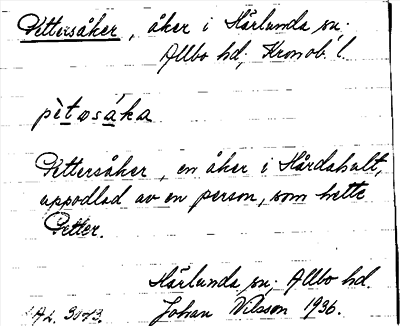 Pettersåker, åker i Härlunda sn;
Allbo hd; Kronob. l.
pètəsáka
Pettersåker, en åker i Hårdahult,
uppodlad av en person, som hette
Petter.
Härlunda sn; Allbo hd.
Johan Nilsson 1936.